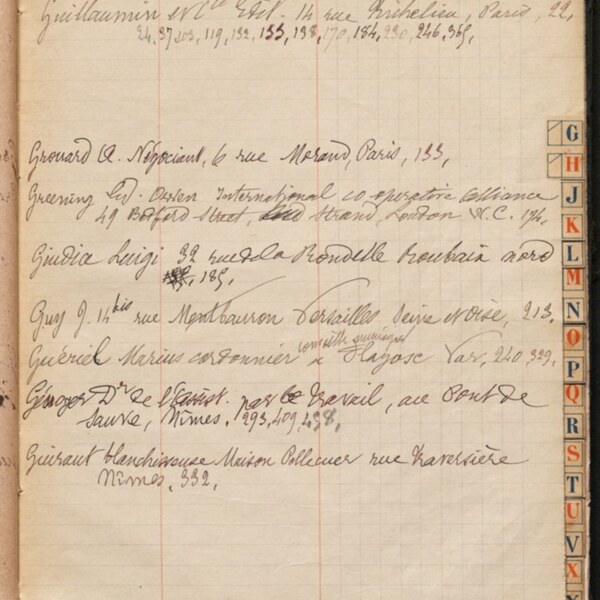 Guillaumin et Cie Edit. 14 rue Richelieu, Paris, 22,
24, 37, 103, 119, 132, 133, 138, 170, 184, 230, 246, 365,
Grouard A. Négociant, 6 rue Morand, Paris, 133,
Greening Ed. Owen International co operative Alliance
49 Bedford Street, Strand, London W.C. 174,
Giudice Luigi 32 rue de la Rondelle Roubaix nord
185,
Guy J. 14 bis rue Montbauron Versailles Seine et Oise, 213.
conseiller municipal
Guériel Marius cordonnier à Flayosc Var, 240, 329,
Dr de par le travail, au Pont de
Sauve, Nîmes. 293, 409, 438,
Guiraut blanchisseuse Maison rue Traversière
Nîmes, 332,
G
H
J
K
L
M
N
O
P
Q
R
S
T
U
V
X
Y